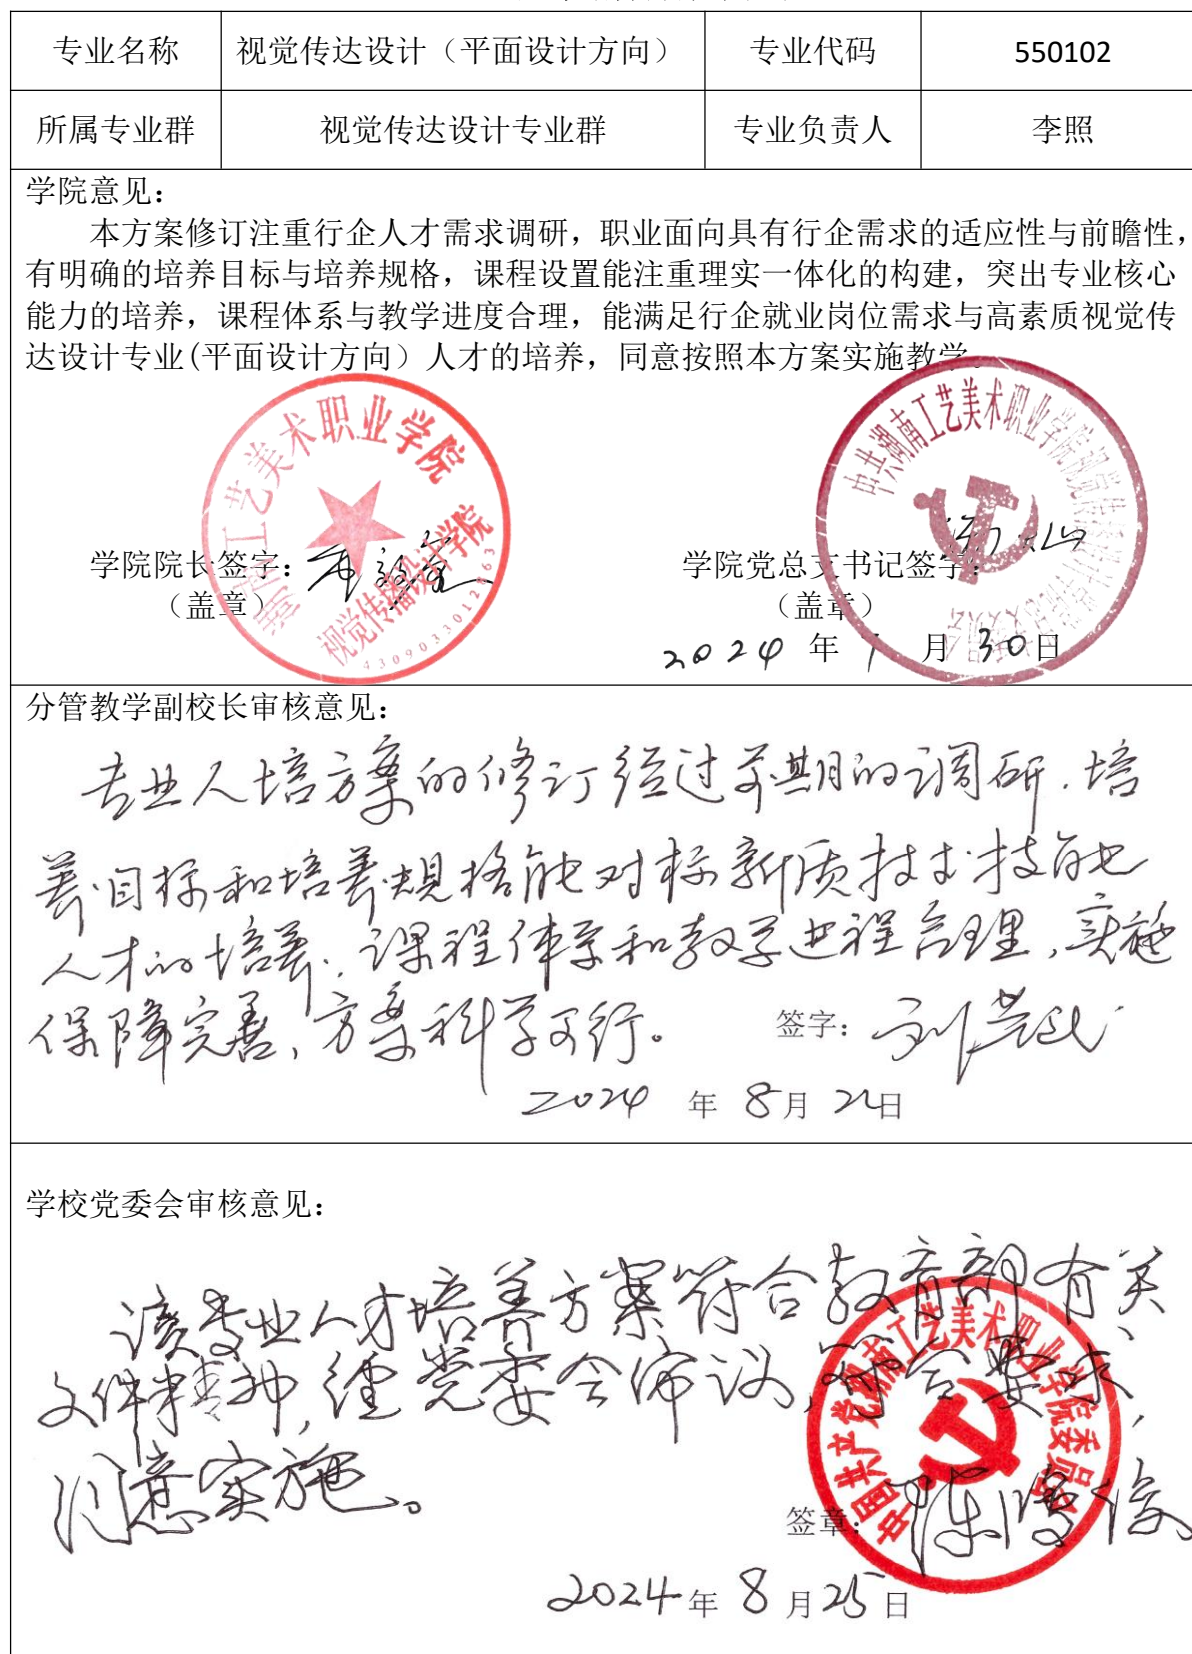 专业名称 视觉传达设计（平面设计方向） 专业代码 550102
所属专业群 视觉传达设计专业群 专业负责人 李照
学院意见：
本方案修订注重行企人才需求调研，职业面向具有行企需求的适应性与前瞻性，
有明确的培养目标与培养规格，课程设置能注重理实一体化的构建，突出专业核心
能力的培养，课程体系与教学进度合理，能满足行企就业岗位需求与高素质视觉传
达设计专业(平面设计方向）人才的培养，同意按照本方案实施教学。
湖南工艺美术职业学院
视觉传播设计学院
4309033012863
中共湖南工艺美术职业学院视觉传播设计学院
学院院长签字：
学院党总支书记签字：
（盖章）
（盖章）
2024 年 7 月 30日
分管教学副校长审核意见：
专业人培方案的修订经过前期的调研．培
养目标和培养规格能对标新质技术技能
人才的培养．课程体系和教学进程合理，实施
保障完善，方案科学可行。
签字：
2024 年 8月 21日
学校党委会审核意见：
该专业人才培养方案符合教育部有关
文件精神，经党委会审议，符合要求，
同意实施。
中国共产党湖南工艺美术职业学院委员会
签章：
2024年 8 月25日